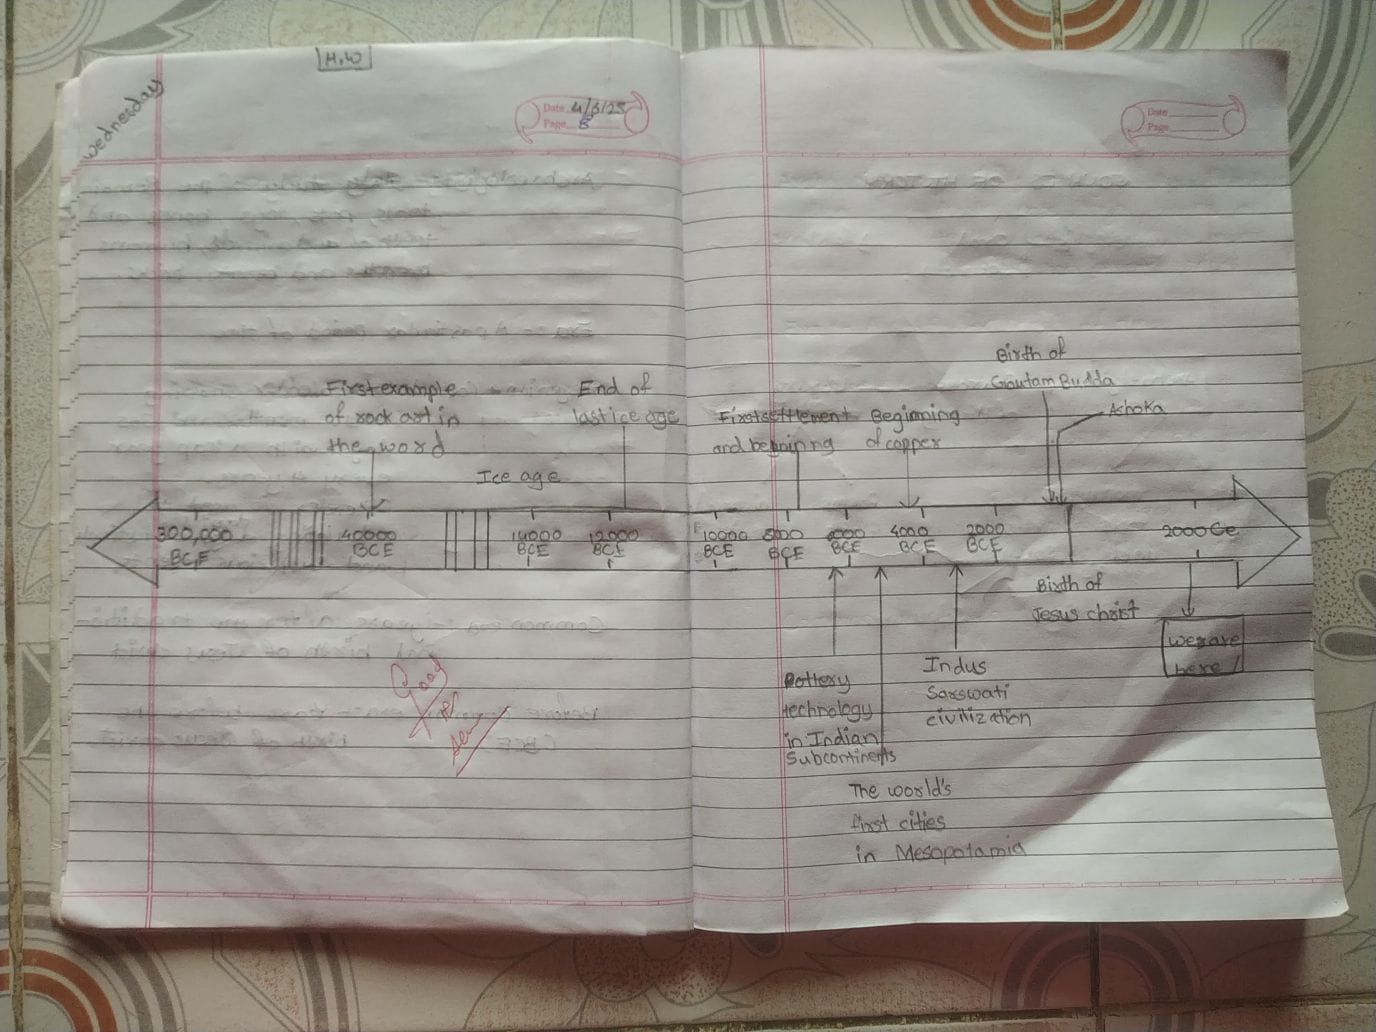 H.W
Wednesday
Date 4/6/25
Page 8
Date
Page
Birth of
Goutam Budda
First example
of rock art in
the word
End of
last ice age
First settlement
and beginning
Beginning
of copper
Ashoka
Ice age
300,000
BCE
40000
BCE
14000
BCE
12000
BCE
10000
BCE
8000
BCE
6000
BCE
4000
BCE
2000
BCE
2000 Ce
Birth of
Jesus christ
we are
here !
Good
Pottery
technology
in Indian
Subcontinents
Indus
Sarswati
civilization
The world's
first cities
in Mesopotamia